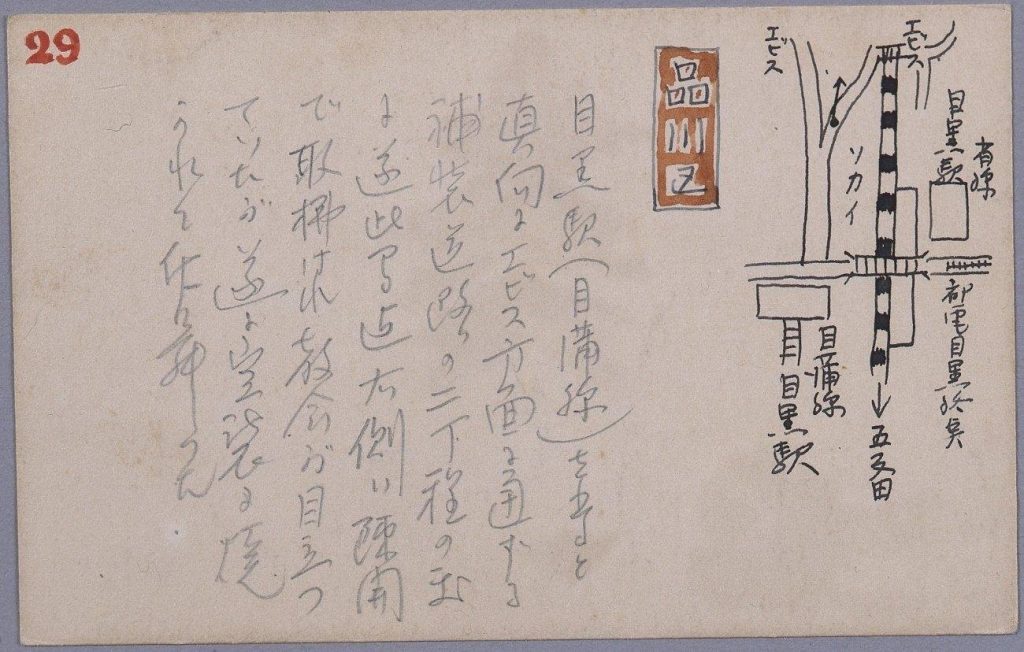 29
エビス
エビス
ソカイ
省線
目黒駅
都電目黒終点
目蒲線
目黒駅
五反田
品川区
目黒駅(目蒲線)を
真向にエビス方面に通ずる
補装道路の二丁程の
に遂此間迠右側に疎開
で取拂はれ教会が目立つ
ていたが遂に空襲に焼
かれて仕舞つた